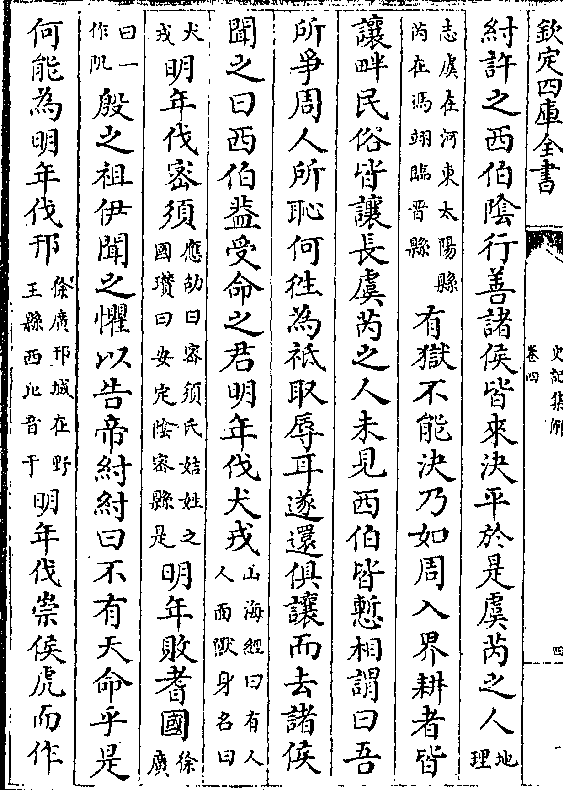 欽定四庫全書
史記集解
卷四
四
紂許之西伯陰行善諸侯皆來決平於是虞芮之人地理
志虞在河東太陽縣芮在馮翊臨晉縣有獄不能決乃如周入界耕者皆
讓畔民俗皆讓長虞芮之人未見西伯皆慙相謂曰吾
所爭周人所恥何徃為祇取辱耳遂還俱讓而去諸侯
聞之曰西伯葢受命之君明年伐犬戎山海經曰有人人面獸身名曰
犬戎明年伐宻須應劭曰宻須氏姞姓之國瓚曰安定陰宻縣是明年敗耆國徐廣
曰一作𨸝殷之祖伊聞之懼以告帝紂紂曰不有天命乎是
何能為明年伐邘徐廣邘城在野王縣西北音于明年伐崇侯虎而作